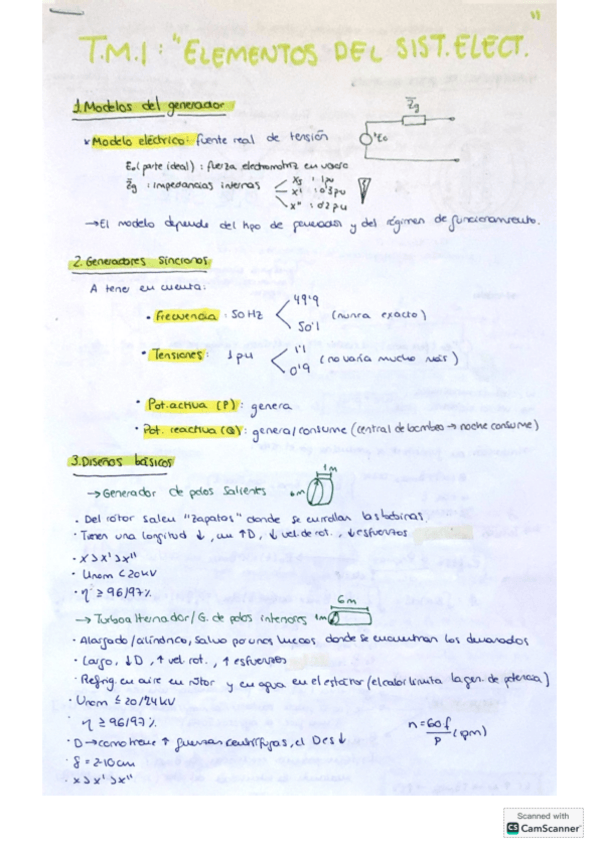 T.M.1: "ELEMENTOS DEL SIST. ELECT.
1. Modelos del generador
Z̄g
* Modelo eléctrico: fuente real de tensión
Eo
Eo (parte ideal): fuerza electromotriz en vacío
Z̄g: impedancias internas
Xs : 1pu
X' : 0'3pu
X'' : 0'2pu
→ El modelo depende del tipo de generador y del régimen de funcionamiento.
2. Generadores síncronos
A tener en cuenta:
49'9
• Frecuencia: 50Hz (nunca exacto)
50'1
1'1
• Tensiones: 1pu (no varía mucho más)
0'9
• Pot. activa (P): genera
• Pot. reactiva (Q): genera/consume (central de bombeo → noche consume)
3. Diseños básicos
1M
→ Generador de polos salientes 6M
• Del rotor salen "zapatos" donde se enrollan las bobinas.
• Tienen una longitud ↓, un ↑D, ↓ vel. de rot., ↓ esfuerzos
• X > X' > X''
• Unom < 20kV
• η ≥ 96/97%
6m
→ Turboalternador/G. de polos interiores 1M
• Alargado/cilíndrico, salvo por unos huecos donde se encuentran los devanados
• Largo, ↓D, ↑ vel. rot., ↑ esfuerzos
• Refrig. en aire en rotor y en agua en el estátor (el calor limita la gen. de potencia)
• Unom ≤ 20/24kV
• η ≥ 96/97%
n = 60f/P (rpm)
• D → como tiene ↑ fuerzas centrífugas, el D es ↓
• δ = 2-10cm
• X > X' > X''
Scanned with
CS CamScanner